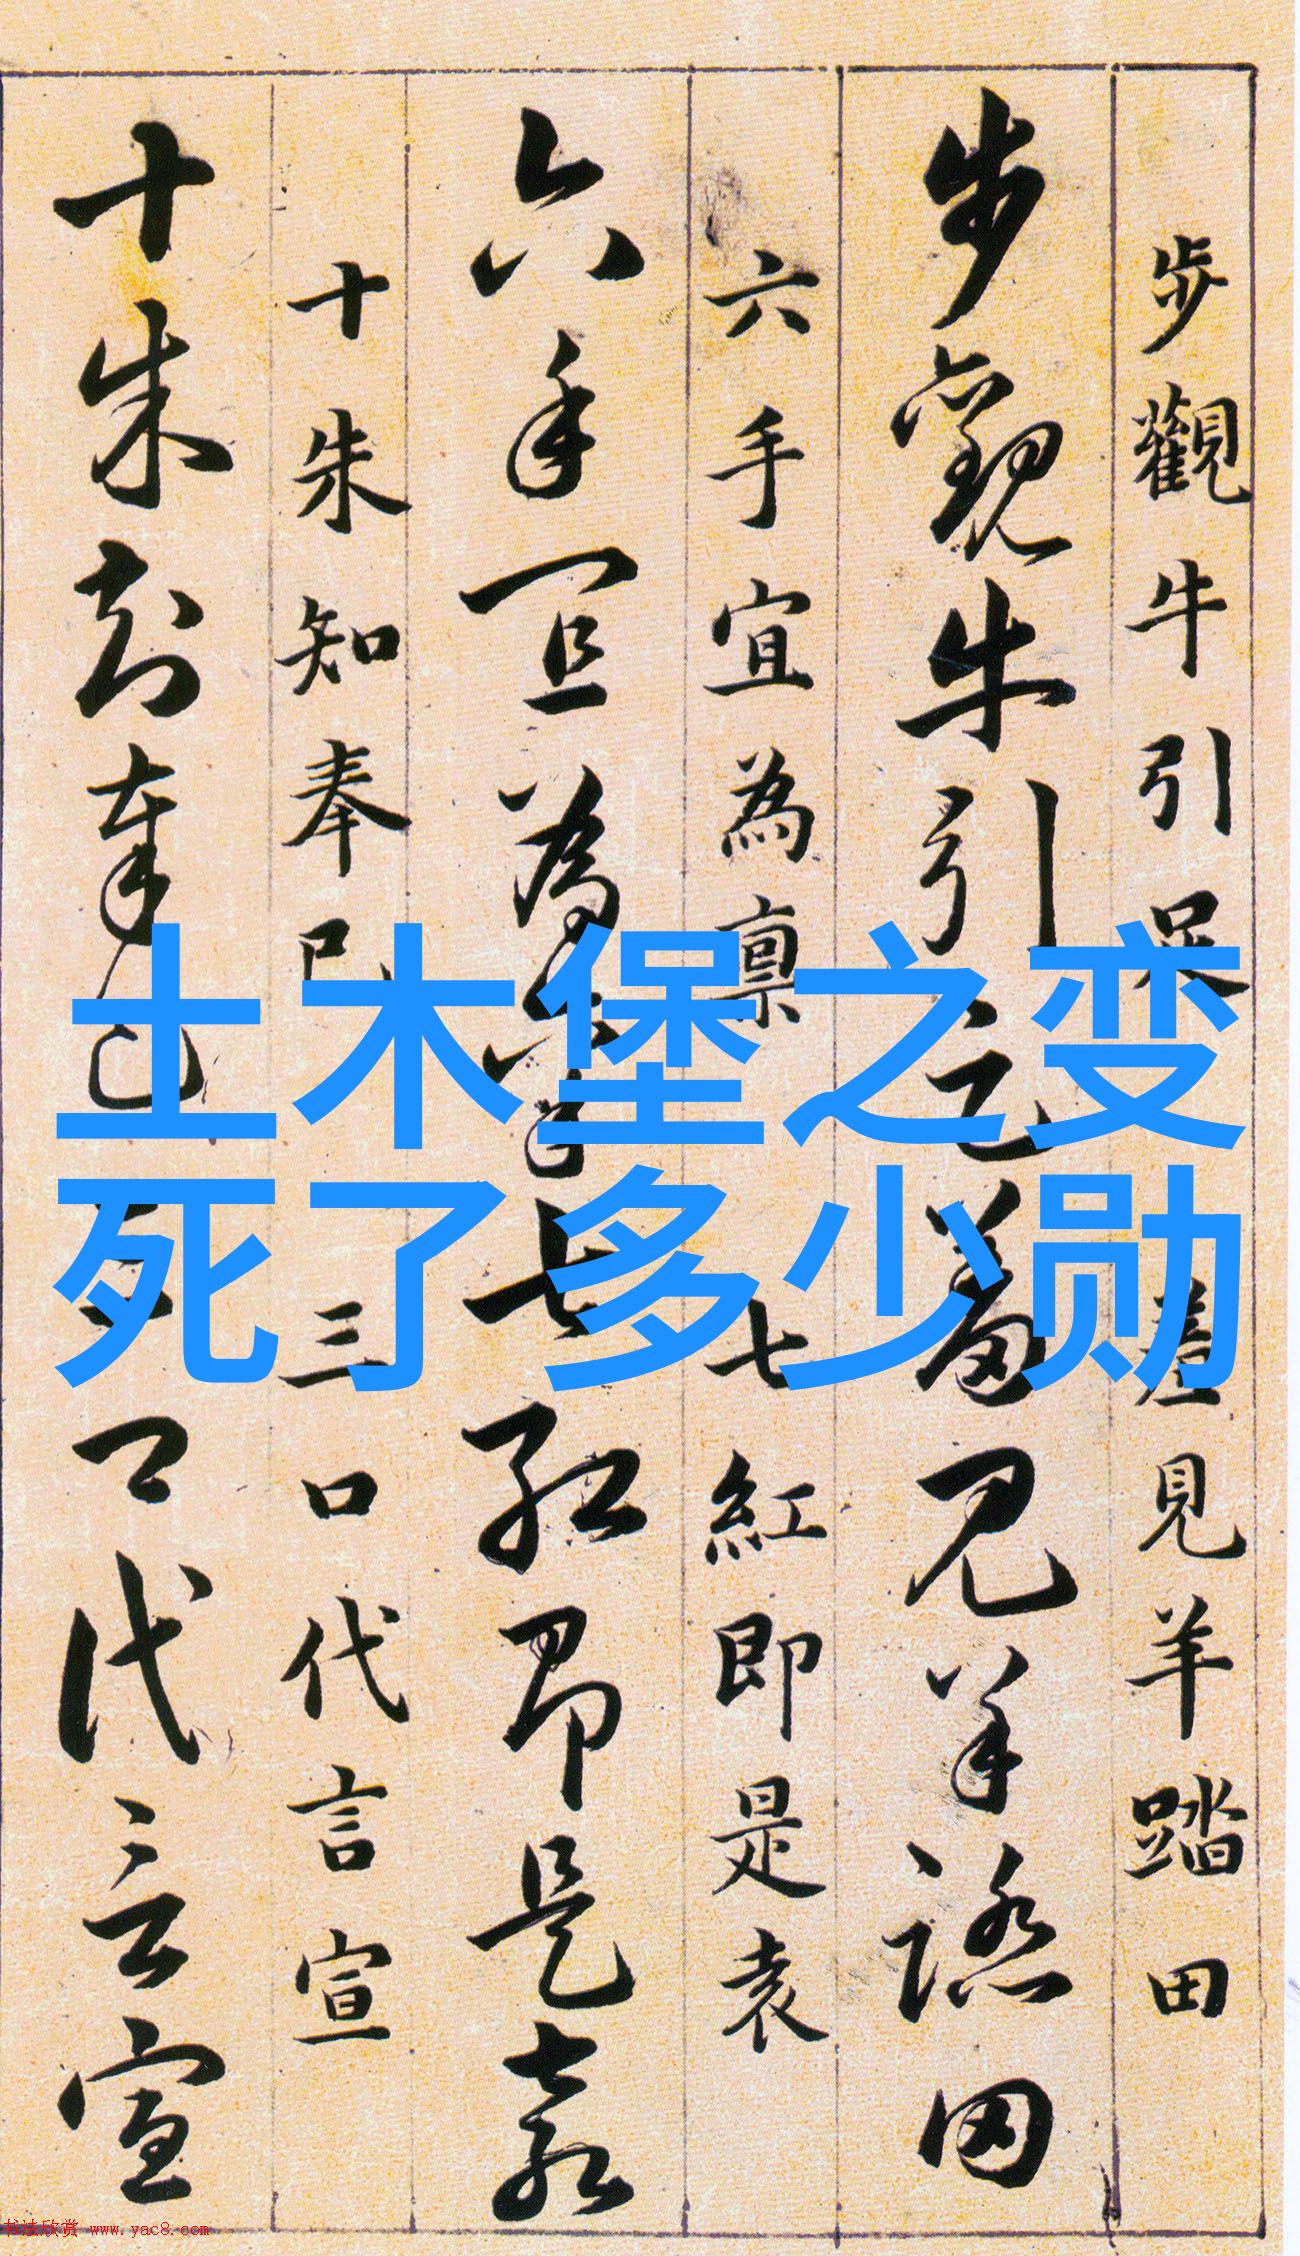 土木堡之变
死了多少勋
步觀牛引足羞見羊踏田
步觀牛引足羞見羊踏田
六手宜為稟七紅即是袁
六手宜為稟七紅即是袁
十朱知奉已三口代言宣
十朱知奉已三口代言宣
书法欣赏 www.yac8.com